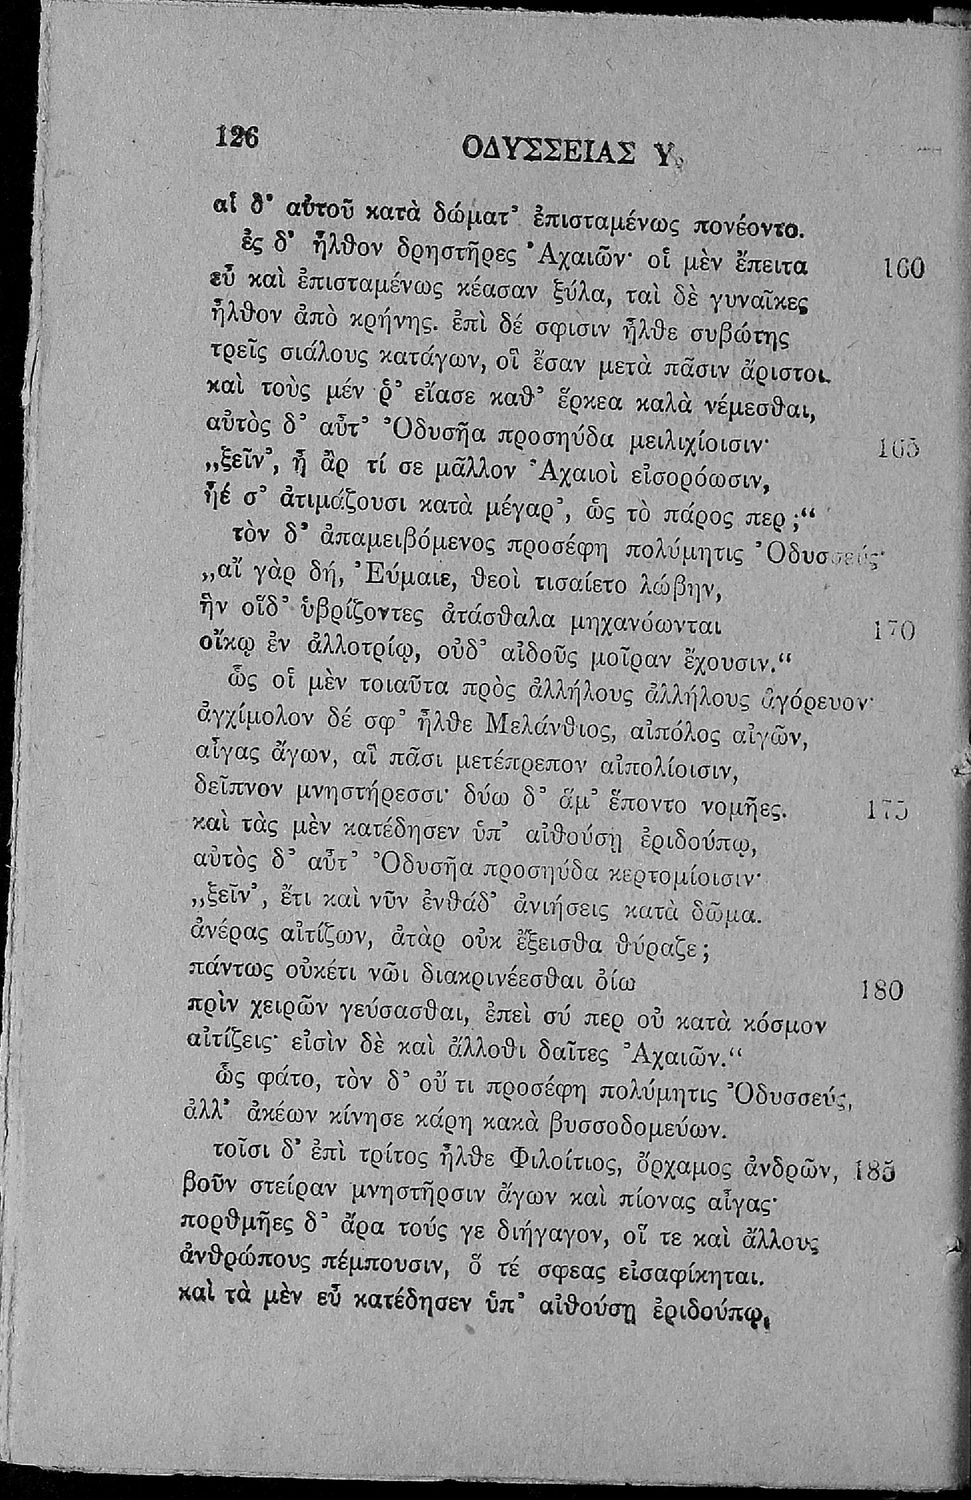 126 ΟΔΥΣΣΕΙΑΣ Υ
αἱ δ᾽ αὐτοῦ κατὰ δώματ᾽ ἐπισταμένως πονέοντο.
ἐς δ᾽ ἦλθον δρηστῆρες Ἀχαιῶν· οἱ μὲν ἔπειτα 160
εὖ καὶ ἐπισταμένως κέασαν ξύλα, ταὶ δὲ γυναῖκες
ἦλθον ἀπὸ κρήνης. ἐπὶ δέ σφισιν ἦλθε συβώτης
τρεῖς σιάλους κατάγων, οἳ ἔσαν μετὰ πᾶσιν ἄριστοι.
καὶ τοὺς μέν ῥ᾽ εἴασε καθ᾽ ἕρκεα καλὰ νέμεσθαι,
αὐτὸς δ᾽ αὖτ᾽ Ὀδυσῆα προσηύδα μειλιχίοισιν· 165
„ξεῖν᾽, ἦ ἄρ τί σε μᾶλλον Ἀχαιοὶ εἰσορόωσιν,
ἦέ σ᾽ ἀτιμάζουσι κατὰ μέγαρ᾽, ὡς τὸ πάρος περ;“
τὸν δ᾽ ἀπαμειβόμενος προσέφη πολύμητις Ὀδυσσεύς·
„αἲ γὰρ δή, Εὔμαιε, θεοὶ τισαίετο λώβην,
ἣν οἵδ᾽ ὑβρίζοντες ἀτάσθαλα μηχανόωνται 170
οἴκῳ ἐν ἀλλοτρίῳ, οὐδ᾽ αἰδοῦς μοῖραν ἔχουσιν.“
ὣς οἱ μὲν τοιαῦτα πρὸς ἀλλήλους ἀλλήλους ἀγόρευον·
ἀγχίμολον δέ σφ᾽ ἦλθε Μελάνθιος, αἰπόλος αἰγῶν,
αἶγας ἄγων, αἳ πᾶσι μετέπρεπον αἰπολίοισιν,
δεῖπνον μνηστήρεσσι· δύω δ᾽ ἅμ᾽ ἕποντο νομῆες. 175
καὶ τὰς μὲν κατέδησεν ὑπ᾽ αἰθούσῃ ἐριδούπῳ,
αὐτὸς δ᾽ αὖτ᾽ Ὀδυσῆα προσηύδα κερτομίοισιν·
„ξεῖν᾽, ἔτι καὶ νῦν ἐνθάδ᾽ ἀνιήσεις κατὰ δῶμα.
ἀνέρας αἰτίζων, ἀτὰρ οὐκ ἔξεισθα θύραζε;
πάντως οὐκέτι νῶι διακρινέεσθαι ὀίω 180
πρὶν χειρῶν γεύσασθαι, ἐπεὶ σύ περ οὐ κατὰ κόσμον
αἰτίζεις· εἰσὶν δὲ καὶ ἄλλοθι δαῖτες Ἀχαιῶν.“
ὣς φάτο, τὸν δ᾽ οὔ τι προσέφη πολύμητις Ὀδυσσεύς,
ἀλλ᾽ ἀκέων κίνησε κάρη κακὰ βυσσοδομεύων.
τοῖσι δ᾽ ἐπὶ τρίτος ἦλθε Φιλοίτιος, ὄρχαμος ἀνδρῶν, 185
βοῦν στείραν μνηστῆρσιν ἄγων καὶ πίονας αἶγας·
πορθμῆες δ᾽ ἄρα τούς γε διήγαγον, οἵ τε καὶ ἄλλους
ἀνθρώπους πέμπουσιν, ὅ τέ σφεας εἰσαφίκηται.
καὶ τὰ μὲν εὖ κατέδησεν ὑπ᾽ αἰθούσῃ ἐριδούπῳ,